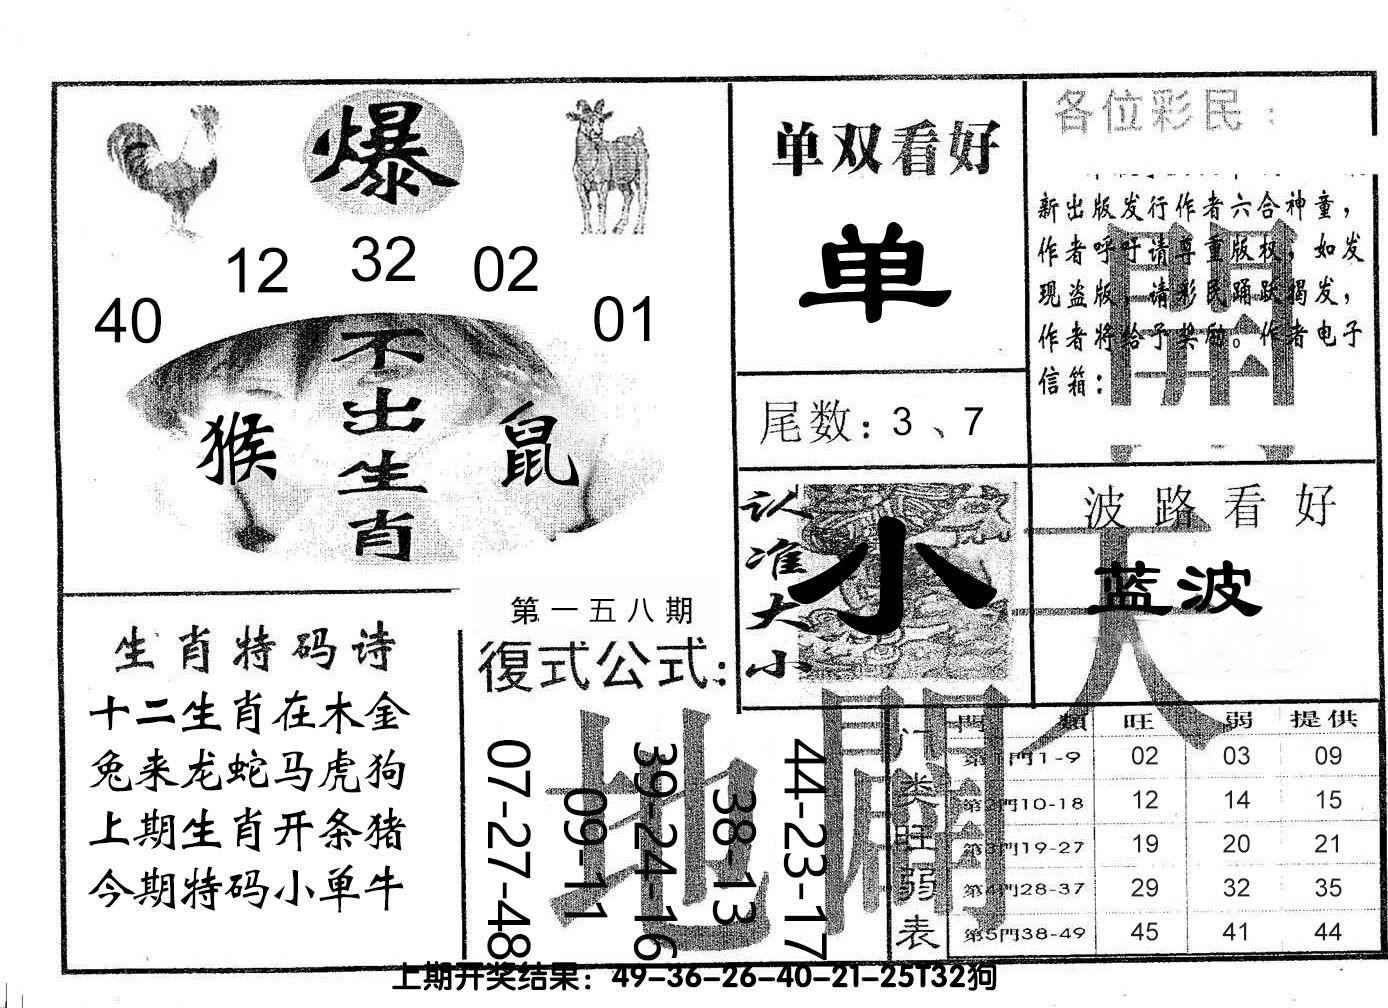 爆
40 12 32 02 01
不出生肖
猴 鼠
生肖特码诗
十二生肖在木金
兔来龙蛇马虎狗
上期生肖开条猪
今期特码小单牛
第一五八期
復式公式:
07-27-48
09-11
39-24-16
38-13
44-23-17
单双看好
单
尾数: 3、7
认准大小
小
各位彩民:
新出版发行作者六合神童,
作者呼吁请尊重版权,如发
现盗版,请彩民踊跃揭发,
作者将给予奖励。作者电子
信箱:
波路看好
蓝波
天
開
地
闢
门类旺弱表
門類 旺 弱 提供
第1門1-9 02 03 09
第2門10-18 12 14 15
第3門19-27 19 20 21
第4門28-37 29 32 35
第5門38-49 45 41 44
上期开奖结果：49-36-26-40-21-25T32狗